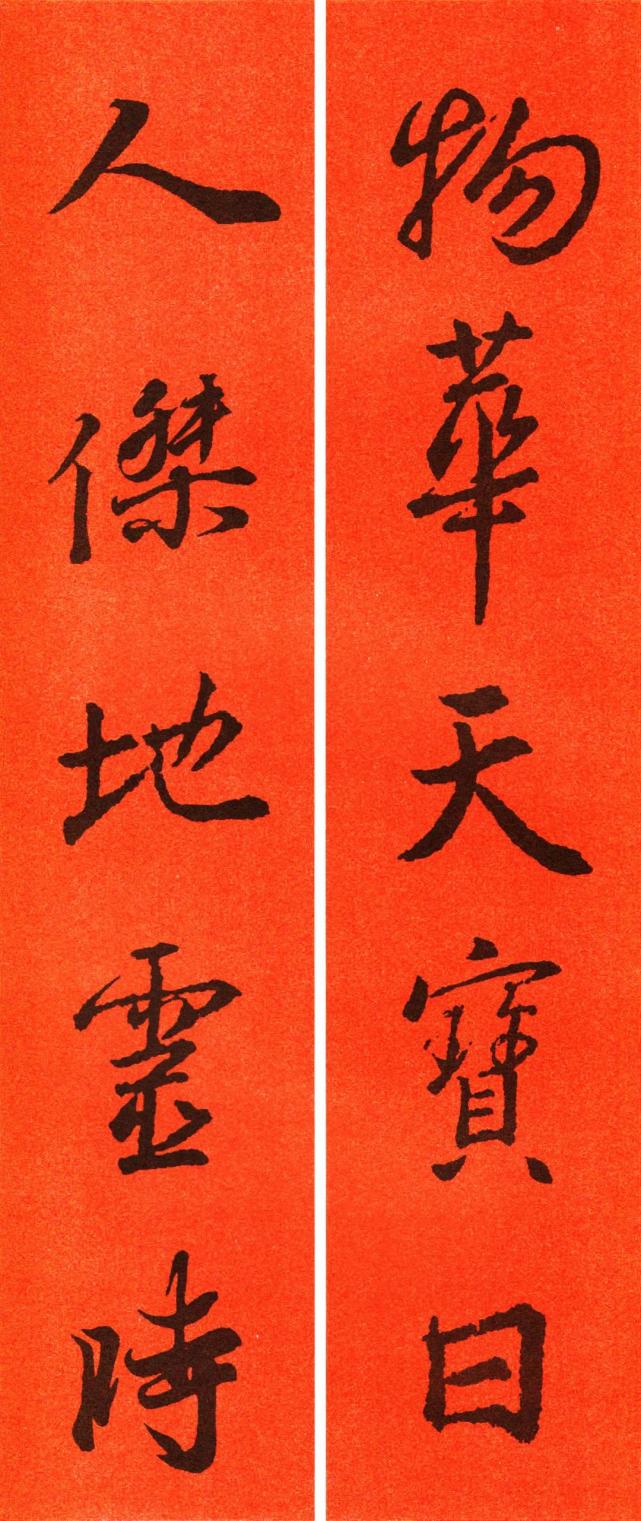 物華天寶日
人傑地靈時